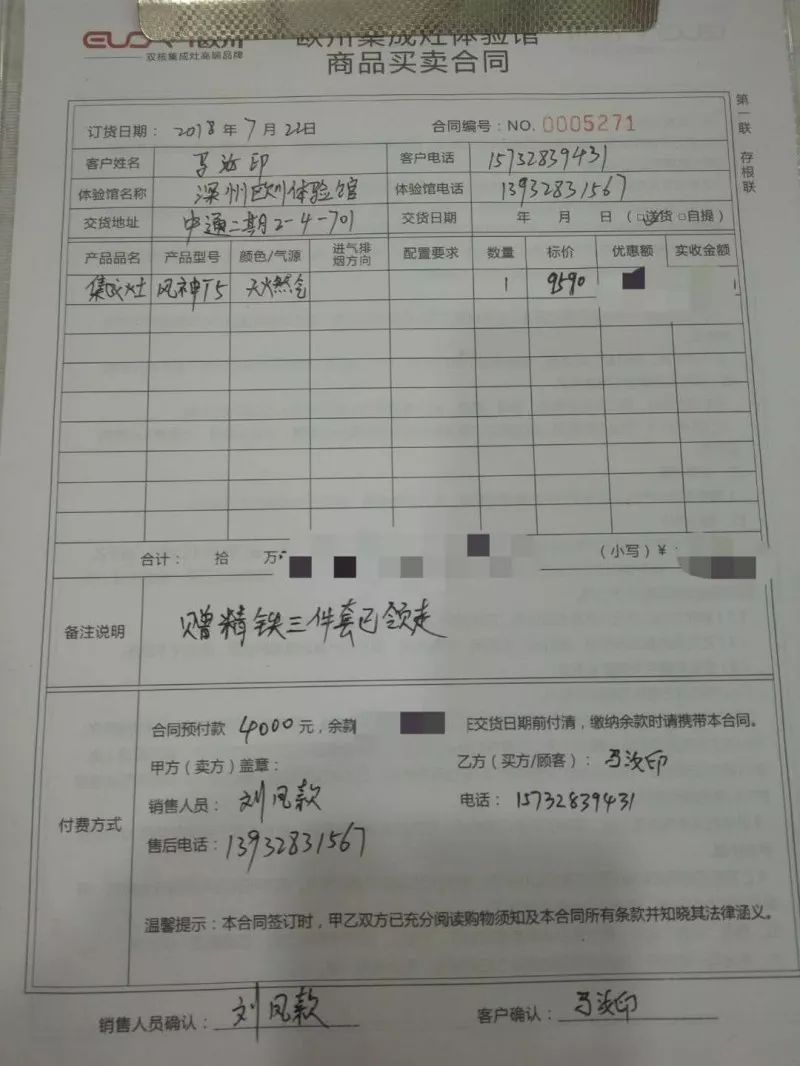 欧川集成灶体验馆
双核集成灶高端品牌
商品买卖合同
订货日期： 2018 年 7 月 22 日 合同编号：NO. 0005271
第一联 存根联
客户姓名 马汝印 客户电话 15732839431
体验馆名称 深州欧川体验馆 体验馆电话 13932831567
交货地址 中通二期2-4-701 交货日期 年 月 日 （□送货 □自提）
产品品名 产品型号 颜色/气源 进气排烟方向 配置要求 数量 标价 优惠额 实收金额
集成灶 风神T5 天然气 1 9590
合计： 拾 万 （小写）¥
备注说明 赠精铁三件套已领走
付费方式
合同预付款 4000 元，余款 在交货日期前付清，缴纳余款时请携带本合同。
甲方（卖方）盖章： 乙方（买方/顾客）： 马汝印
销售人员： 刘凤款 电话： 15732839431
售后电话： 13932831567
温馨提示：本合同签订时，甲乙双方已充分阅读购物须知及本合同所有条款并知晓其法律涵义。
销售人员确认： 刘凤款 客户确认： 马汝印